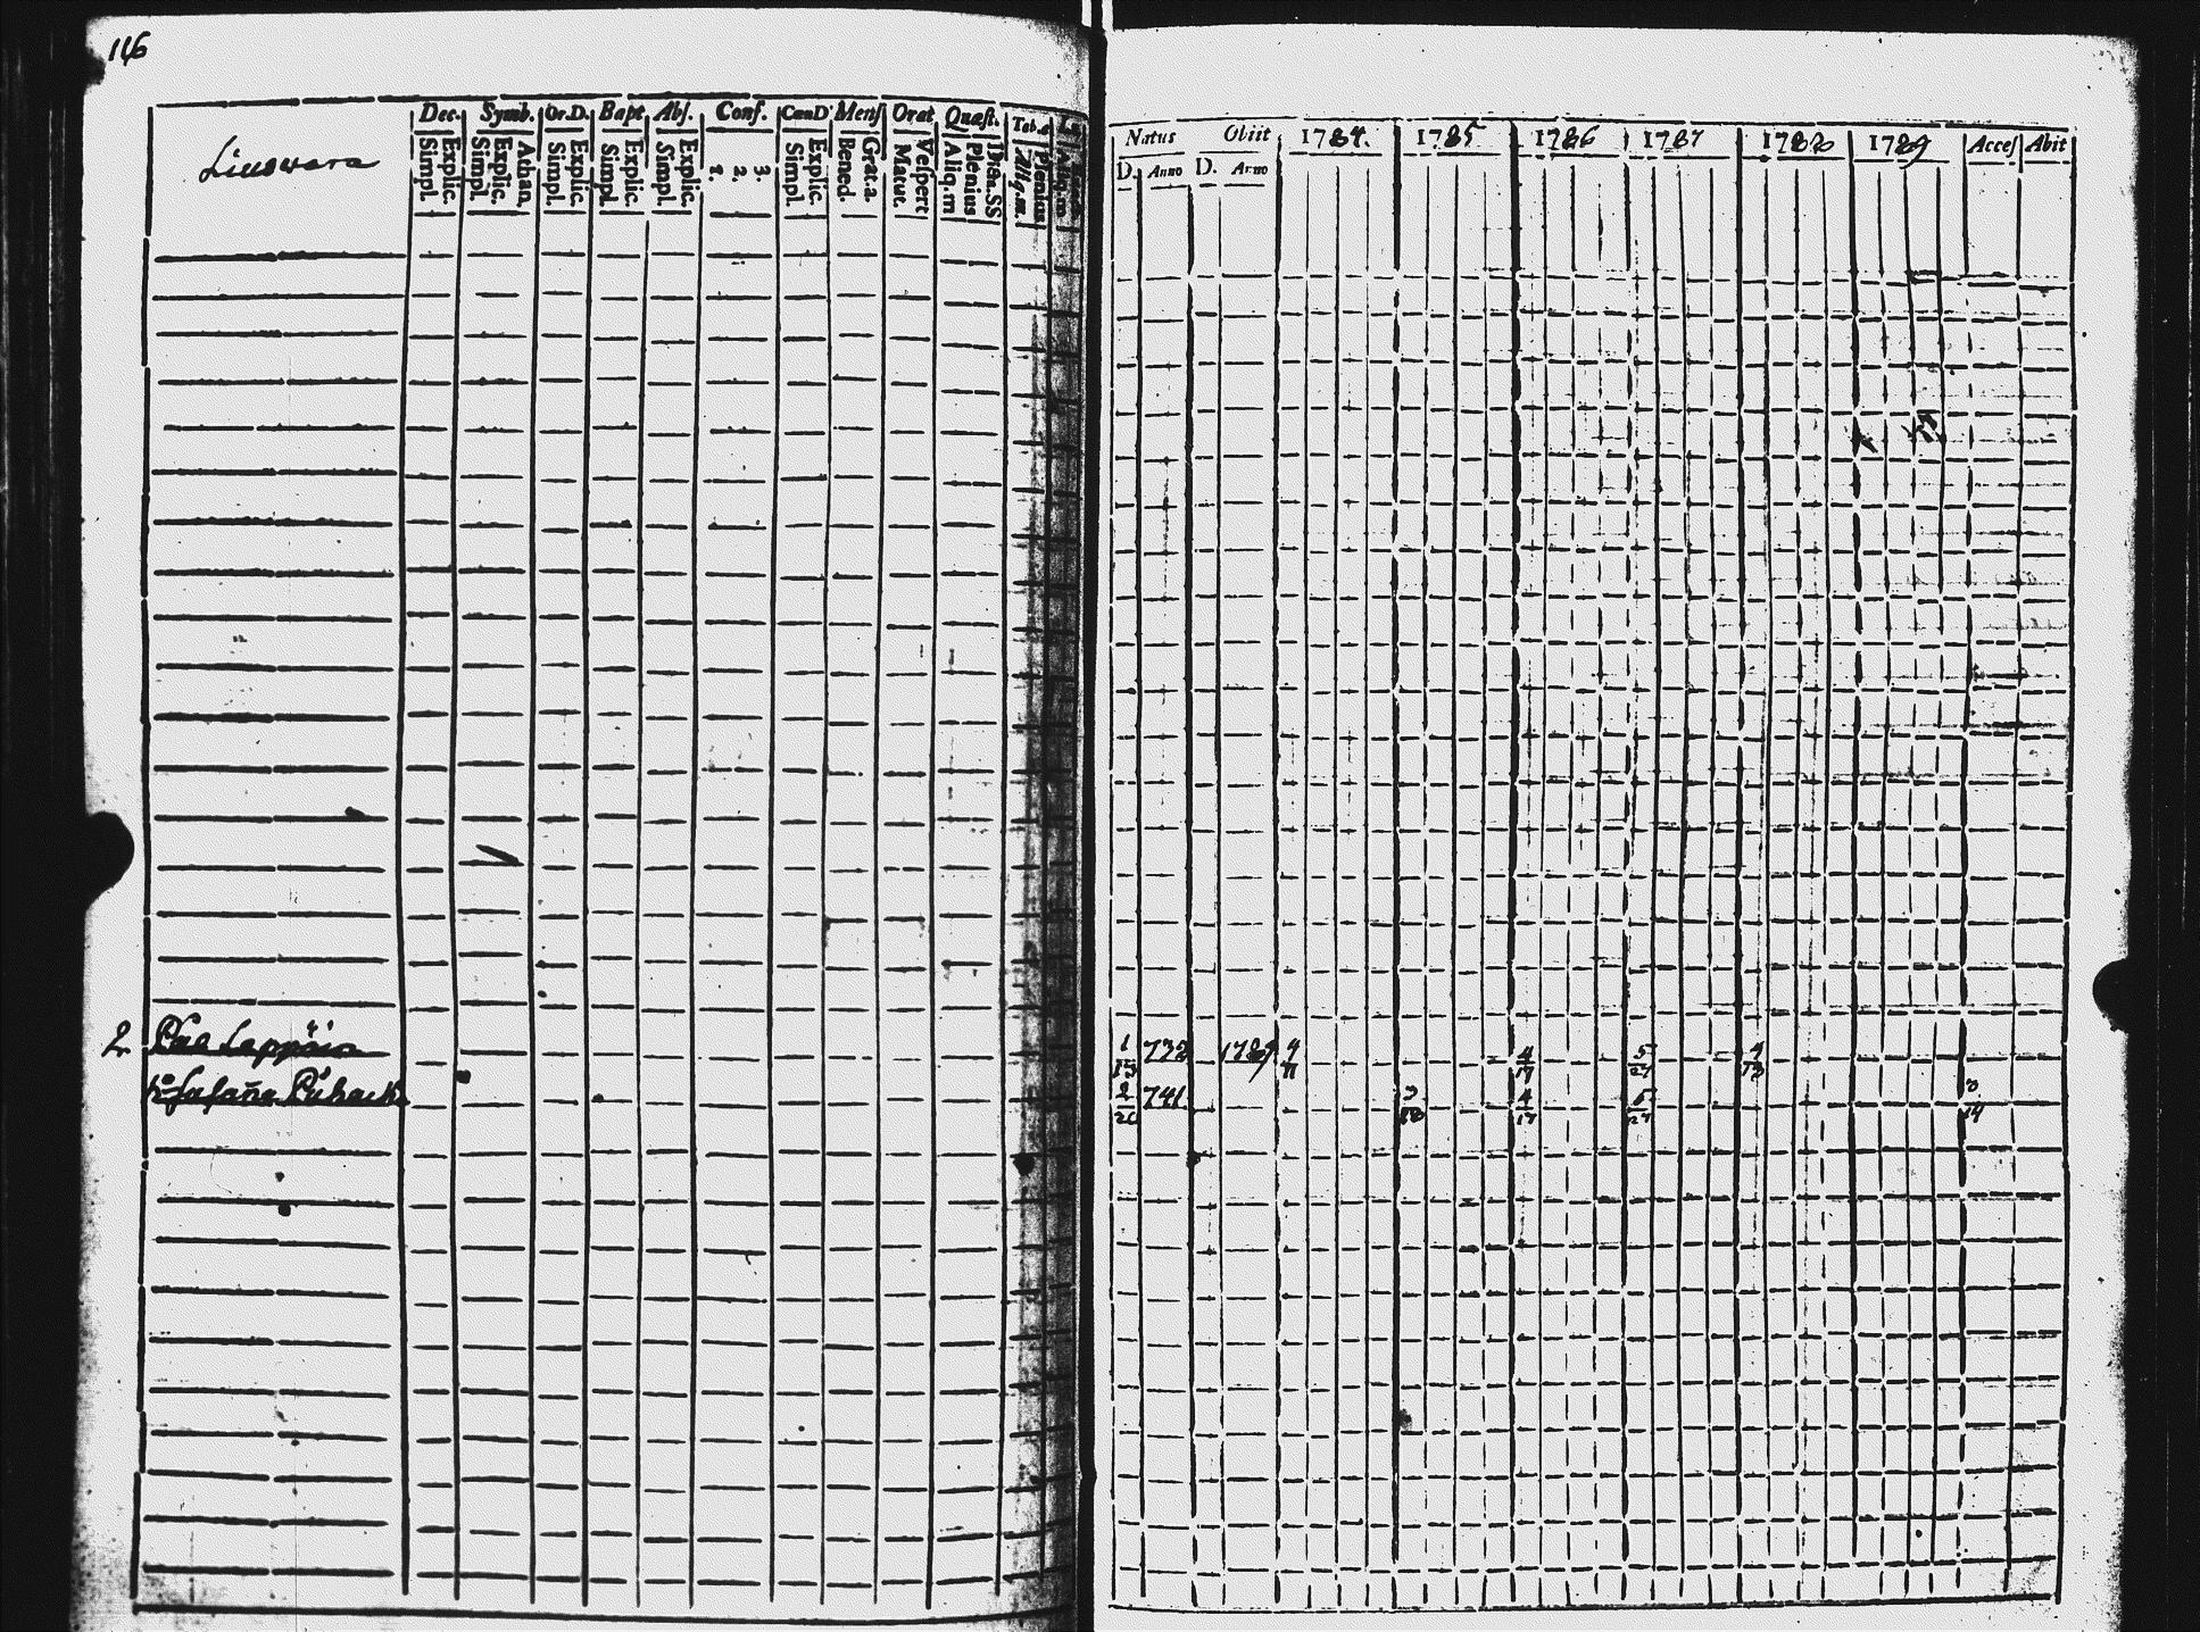 116
Liuswara
Dec. Symb. Or.D. Bapt Abs. Conf. CœnD Mens Orat Quæst. Tab.
Simpl. Explic. Simpl. Explic. Athan. Simpl. Explic. Simpl. Explic. Simpl. Explic. 1. 2. 3. Simpl. Explic. Bened. Grat.a. Matut. Vespert Aliq.m Plenius Dicta.SS Aliq.m. Plenius
Natus Obiit 1784. 1785 1786 1787 1788 1789 Acces Abit
D. Anno D. Anno
2. Pål
1/13 732 1789 4/11 4/17 5/27 4/13
2/20 741. 3/18 4/17 5/27 3/14